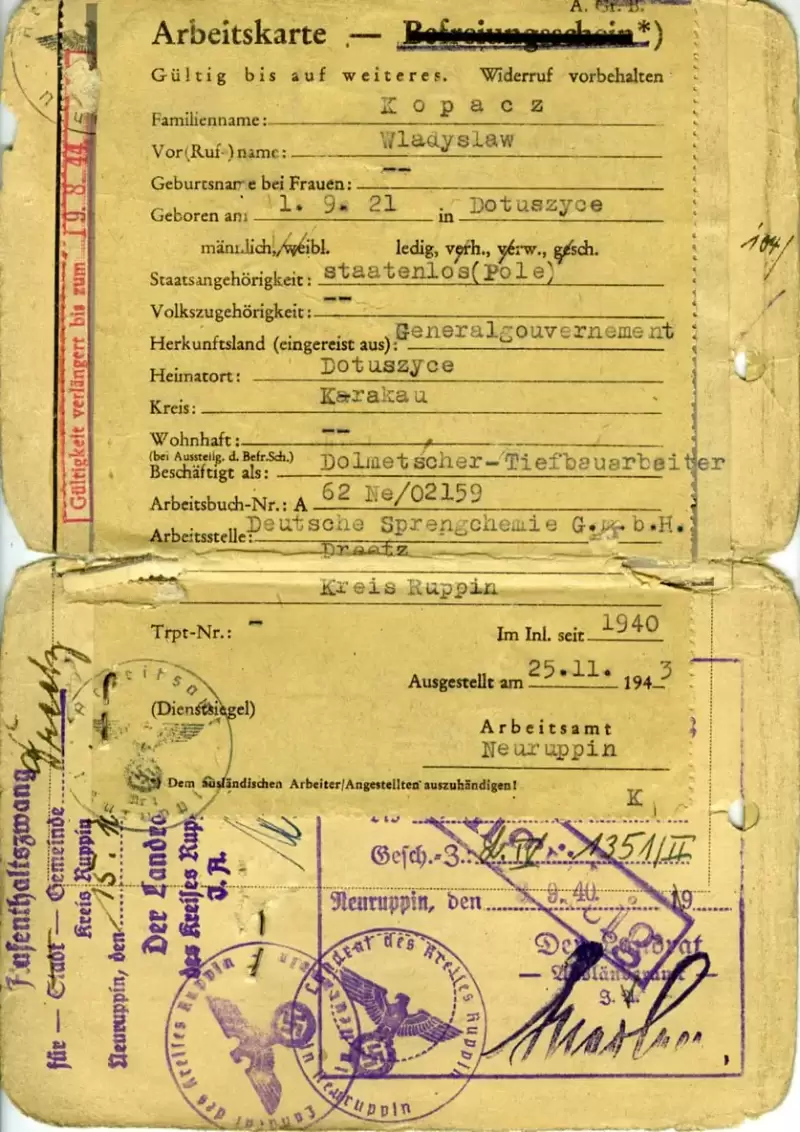 A. Gr. B.
Arbeitskarte — Befreiungsschein*)
Gültig bis auf weiteres. Widerruf vorbehalten
Familienname: Kopacz
Vor(Ruf-)name: Wladyslaw
Geburtsname bei Frauen: --
Geboren am 1. 9. 21 in Dotuszyce
männlich, weibl. ledig, verh., verw., gesch.
Staatsangehörigkeit: staatenlos(Pole)
Volkszugehörigkeit: --
Herkunftsland (eingereist aus): Generalgouvernement
Heimatort: Dotuszyce
Kreis: Karakau
Wohnhaft: --
(bei Ausstellg. d. Befr.Sch.)
Beschäftigt als: Dolmetscher-Tiefbauarbeiter
Arbeitsbuch-Nr.: A 62 Ne/02159
Arbeitsstelle: Deutsche Sprengchemie G.m.b.H.
Draetz
Kreis Ruppin
Trpt-Nr.: - Im Inl. seit 1940
Ausgestellt am 25.11. 1943
(Dienstsiegel)
Arbeitsamt
Neuruppin
*) Dem ausländischen Arbeiter/Angestellten auszuhändigen!
K
Gültigkeit verlängert bis zum 19. 8. 44
104/
Aufenthaltszwang
für — Stadt — Gemeinde
Kreis Ruppin
Neuruppin, den 15.
Der Landra
des Kreises Rup
J. A.
Gesch.-Z.: 1351/II
Neuruppin, den 9. 40. 19
Der Landrat
— Ausländeramt —
J. A.
Landrat des Kreises Ruppin
in Neuruppin
Landrat des Kreises Ruppin
in Neuruppin